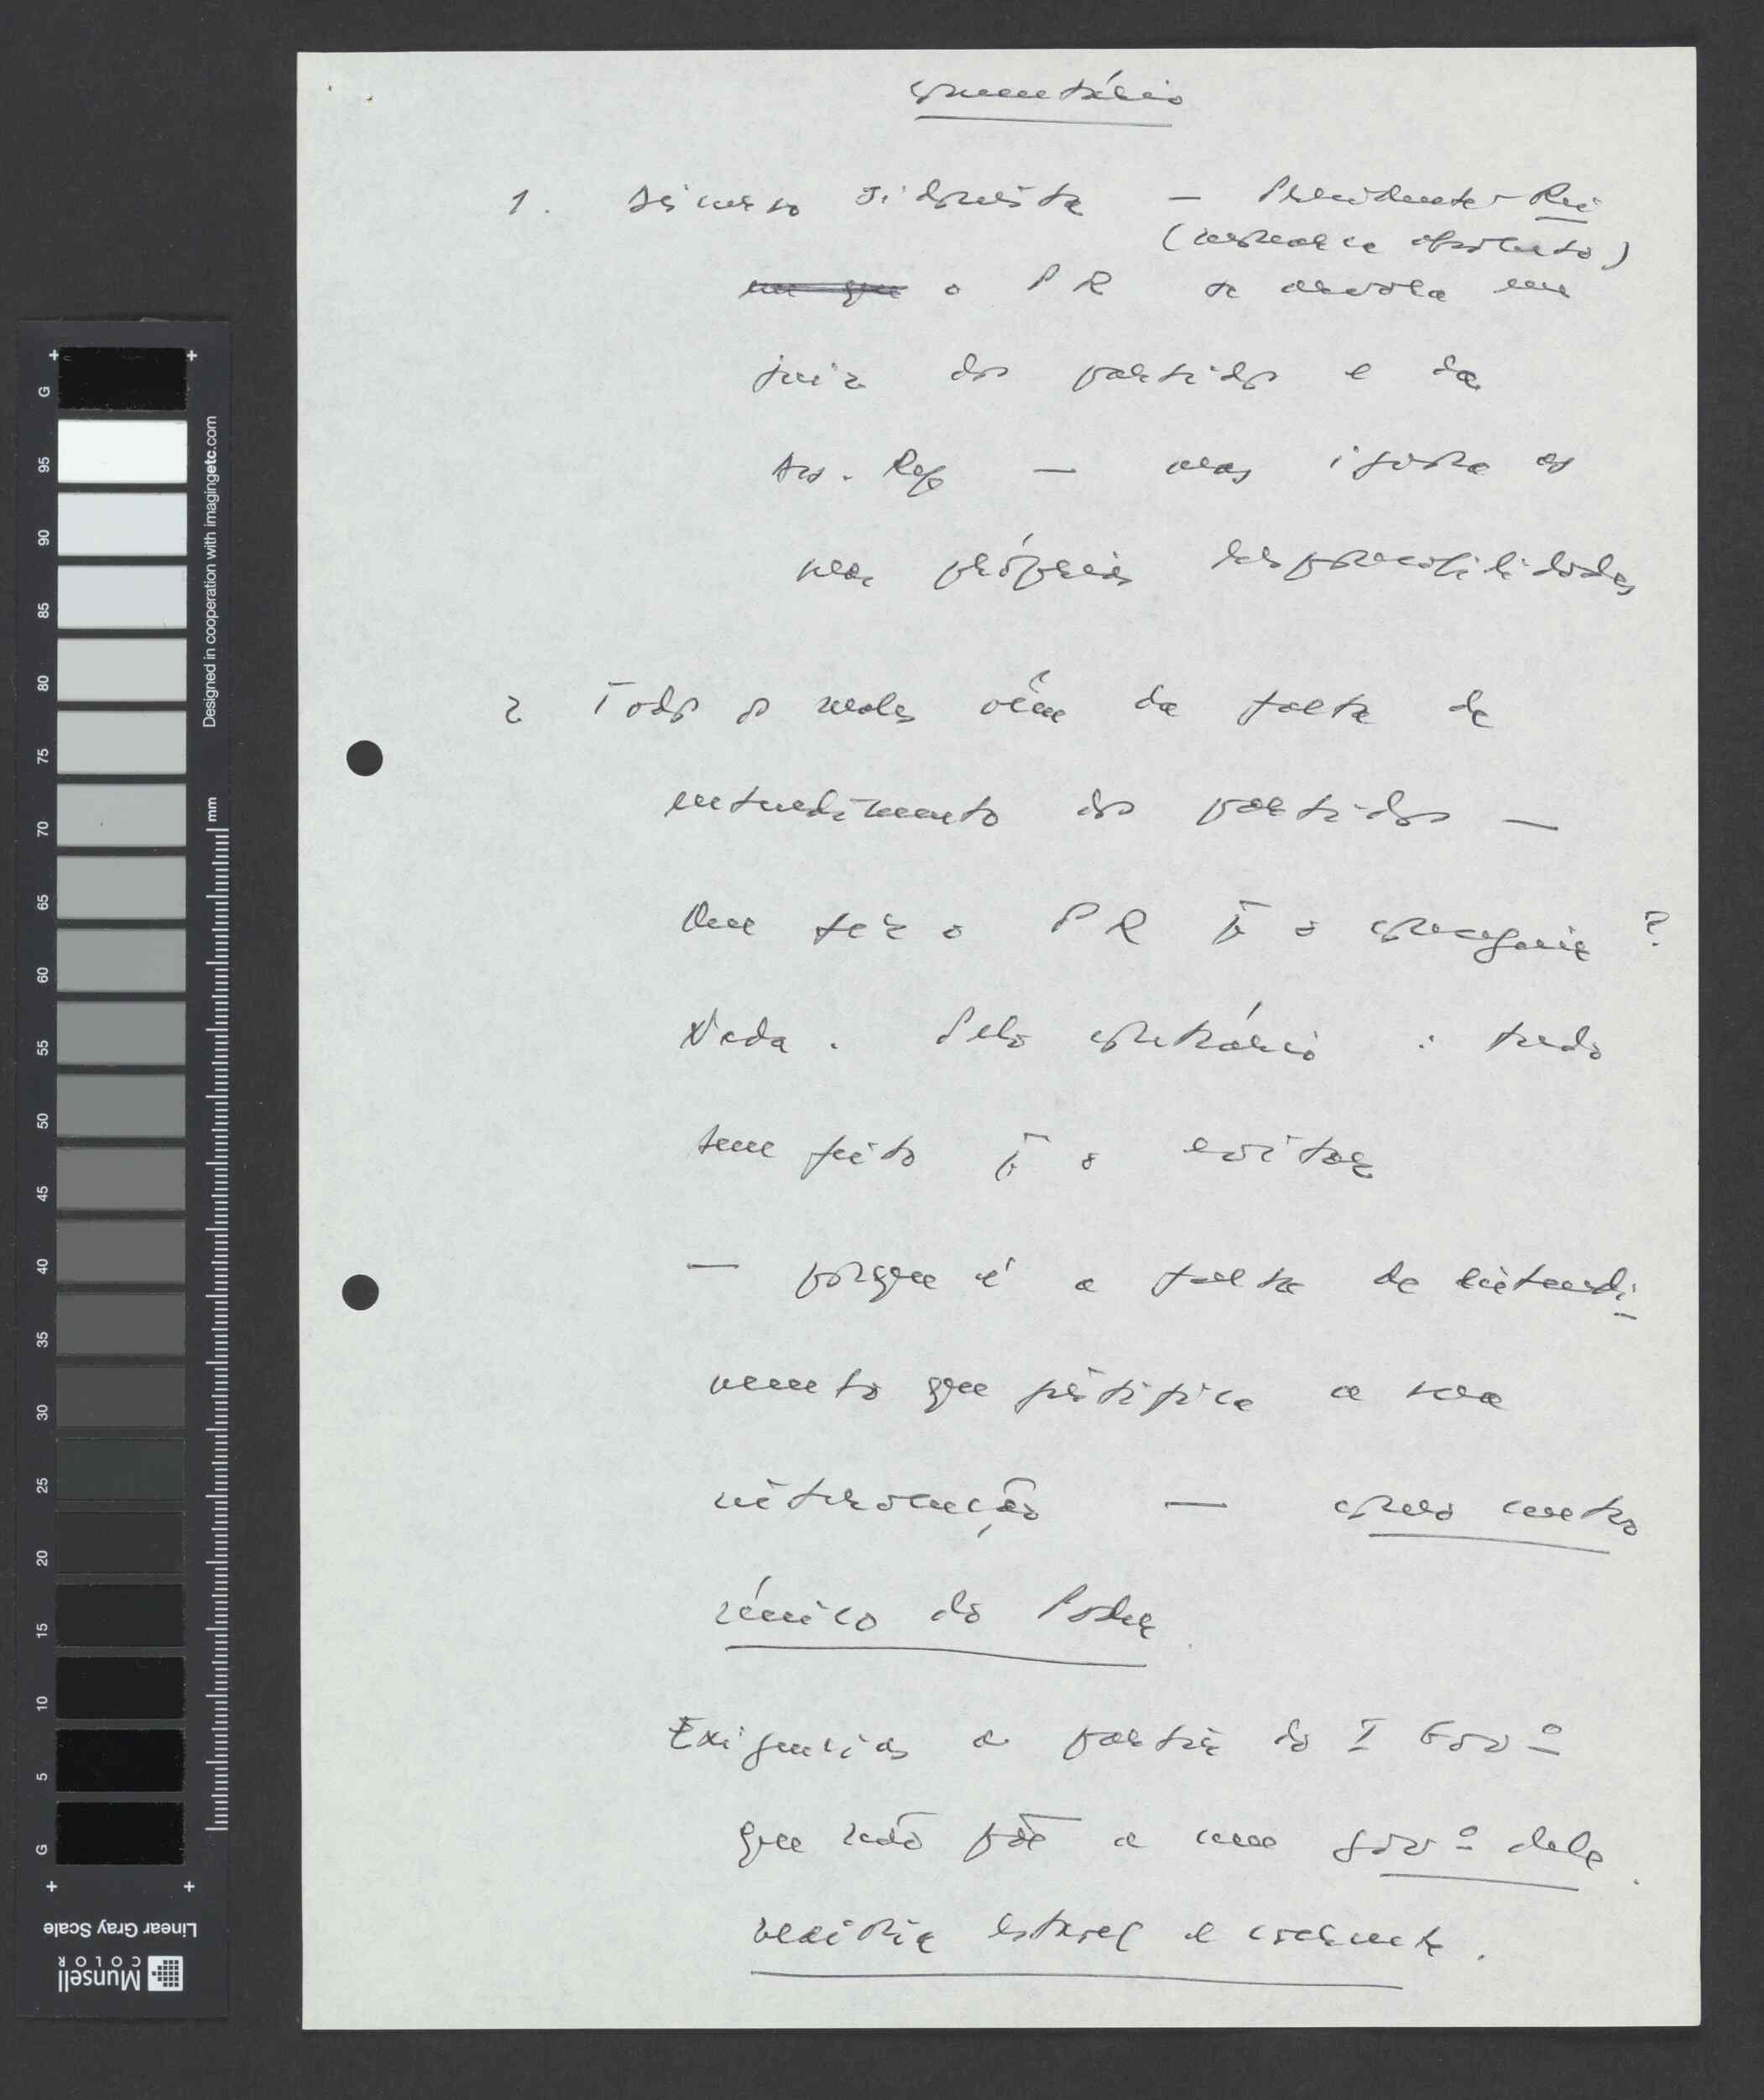 comentário
1. discurso sidonista — Presidente-Rei
(monarca absoluto)
em que o PR se arvora em
juiz dos partidos e da
Ass. Rep — mas ignora as
suas próprias responsabilidades
2 Todos os males vêm da falta de
entendimento dos partidos —
Que fez o PR pª o conseguir ?
Nada. Pelo contrário : tudo
tem feito pª o evitar
— porque é a falta de entendi-
mento que justifica a sua
intervenção — como centro
único do Poder
Exigencias a partir do I Govº
que não põe a um govº dele.
maioria estável e coerente.
G
95
90
85
80
75
70
65
60
55
50
45
40
35
30
25
20
15
10
5
G
Designed in cooperation with imagingetc.com
mm
Linear Gray Scale
Munsell
COLOR